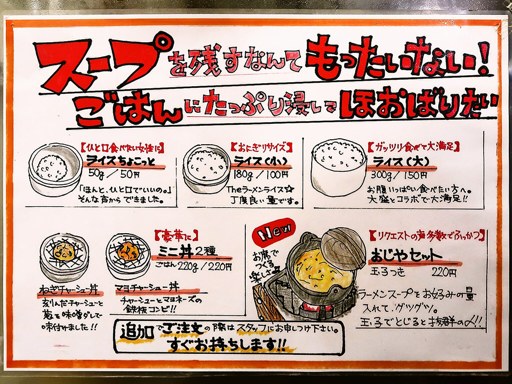 スープを残すなんてもったいない!
ごはんにたっぷり浸してほおばりたい
【ひと口食べたい女性に】
ライスちょこっと
50g/50円
「ほんと、ひと口でいいの。」
そんな声からできました。
【おにぎりサイズ】
ライス(小)
180g/100円
Theラーメンライス☆
丁度良い量です。
【ガッツリ食べて大満足】
ライス(大)
300g/150円
お腹いっぱい食べたい方へ。
大盛とコラボで大満足!!
【豪華に】
ミニ丼2種
ごはん220g/220円
ねぎチャーシュー丼
刻んだチャーシューと
葱を味噌ダレで
味付けました!!
マヨチャーシュー丼
チャーシューとマヨネーズの
鉄板コンビ!!
New
お席で
つくる
楽しさ
【リクエストの声多数でふっかつ】
おじやセット
玉子つき 220円
ラーメンスープをお好みの量
入れて、グツグツ。
玉子でとじると抜群の〆!!
追加でご注文の際はスタッフにお申しつけ下さい。
すぐお持ちします!!